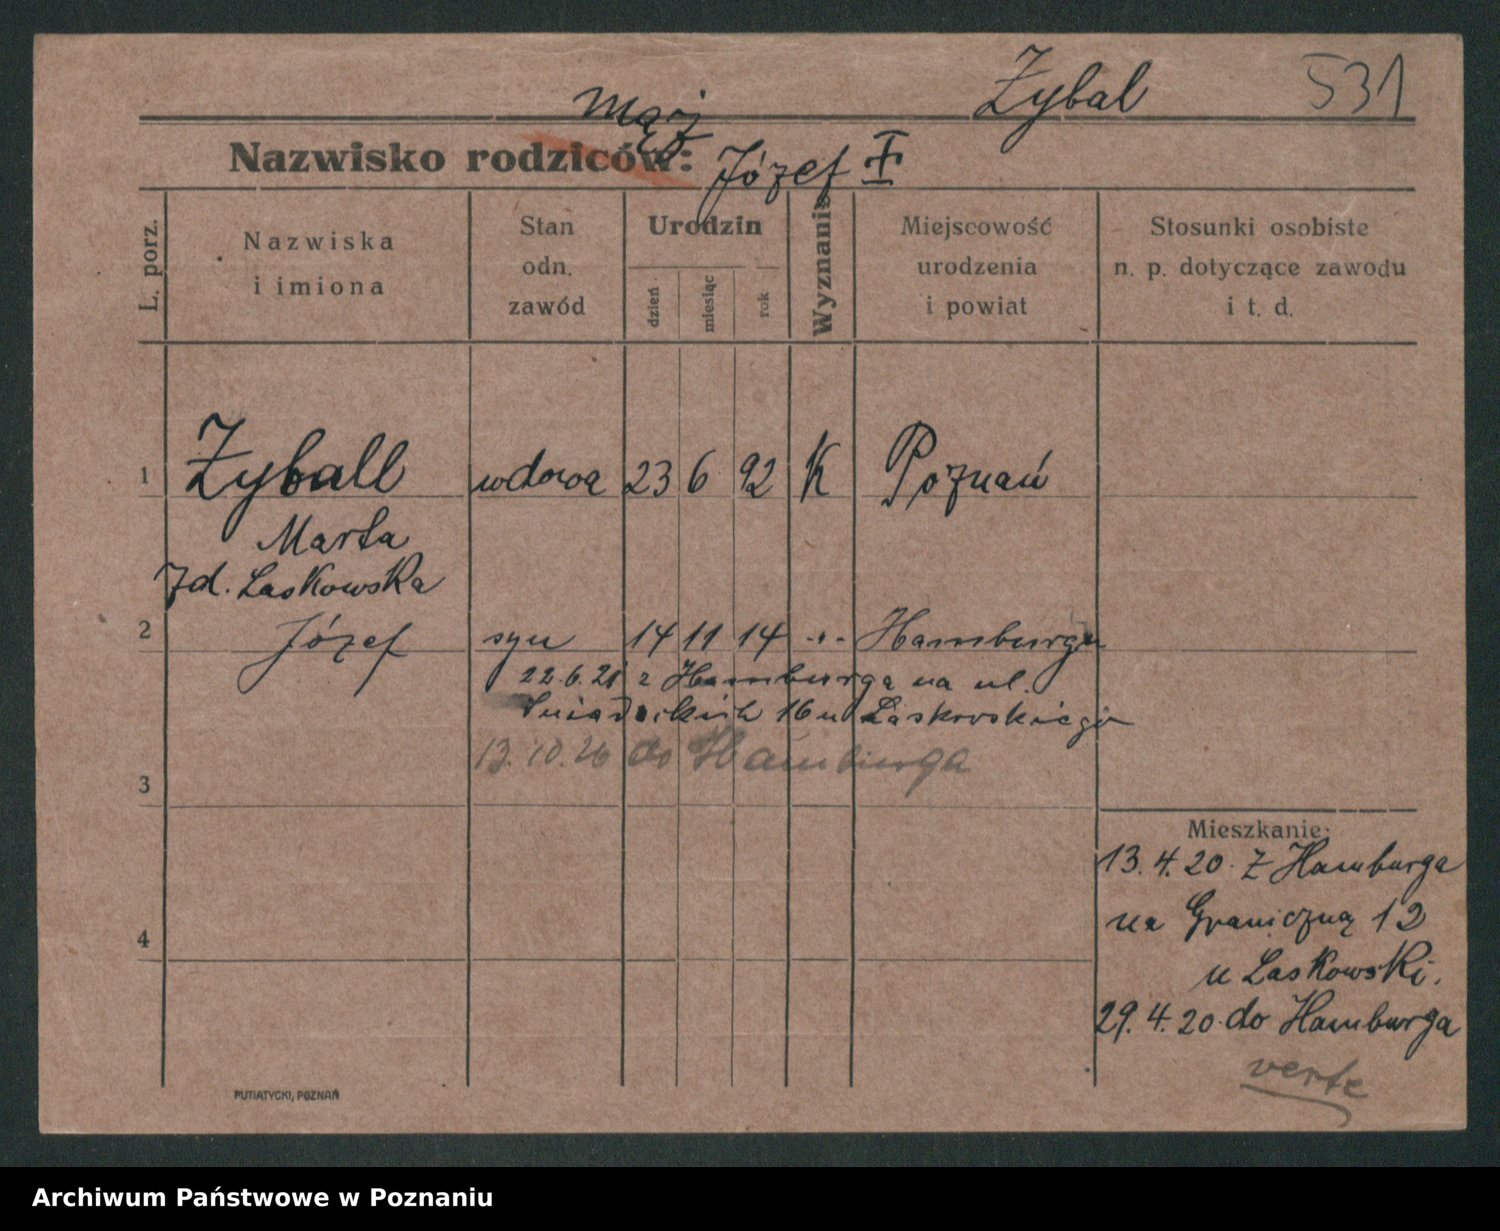 Żybal 531
mąż
Nazwisko rodziców: Józef
L. porz.
Nazwiska
i imiona
Stan
odn.
zawód
Urodzin
dzień
miesiąc
rok
Wyznanie
Miejscowość
urodzenia
i powiat
Stosunki osobiste
n. p. dotyczące zawodu
i t. d.
1 Żyball wdowa 23 6 92 K Poznań
Marta
zd. Laskowska
2 Józef syn 14 11 14 -"- Hamburgu
22.6.21 z Hamburga na ul.
Śniadeckich 16 u Laskowskiego
13.10.26 do Hamburga
3
4
Mieszkanie:
13.4.20. z Hamburga
na Graniczną 12
u Laskowski.
29.4.20. do Hamburga
verte
PUTIATYCKI, POZNAŃ
Archiwum Państwowe w Poznaniu